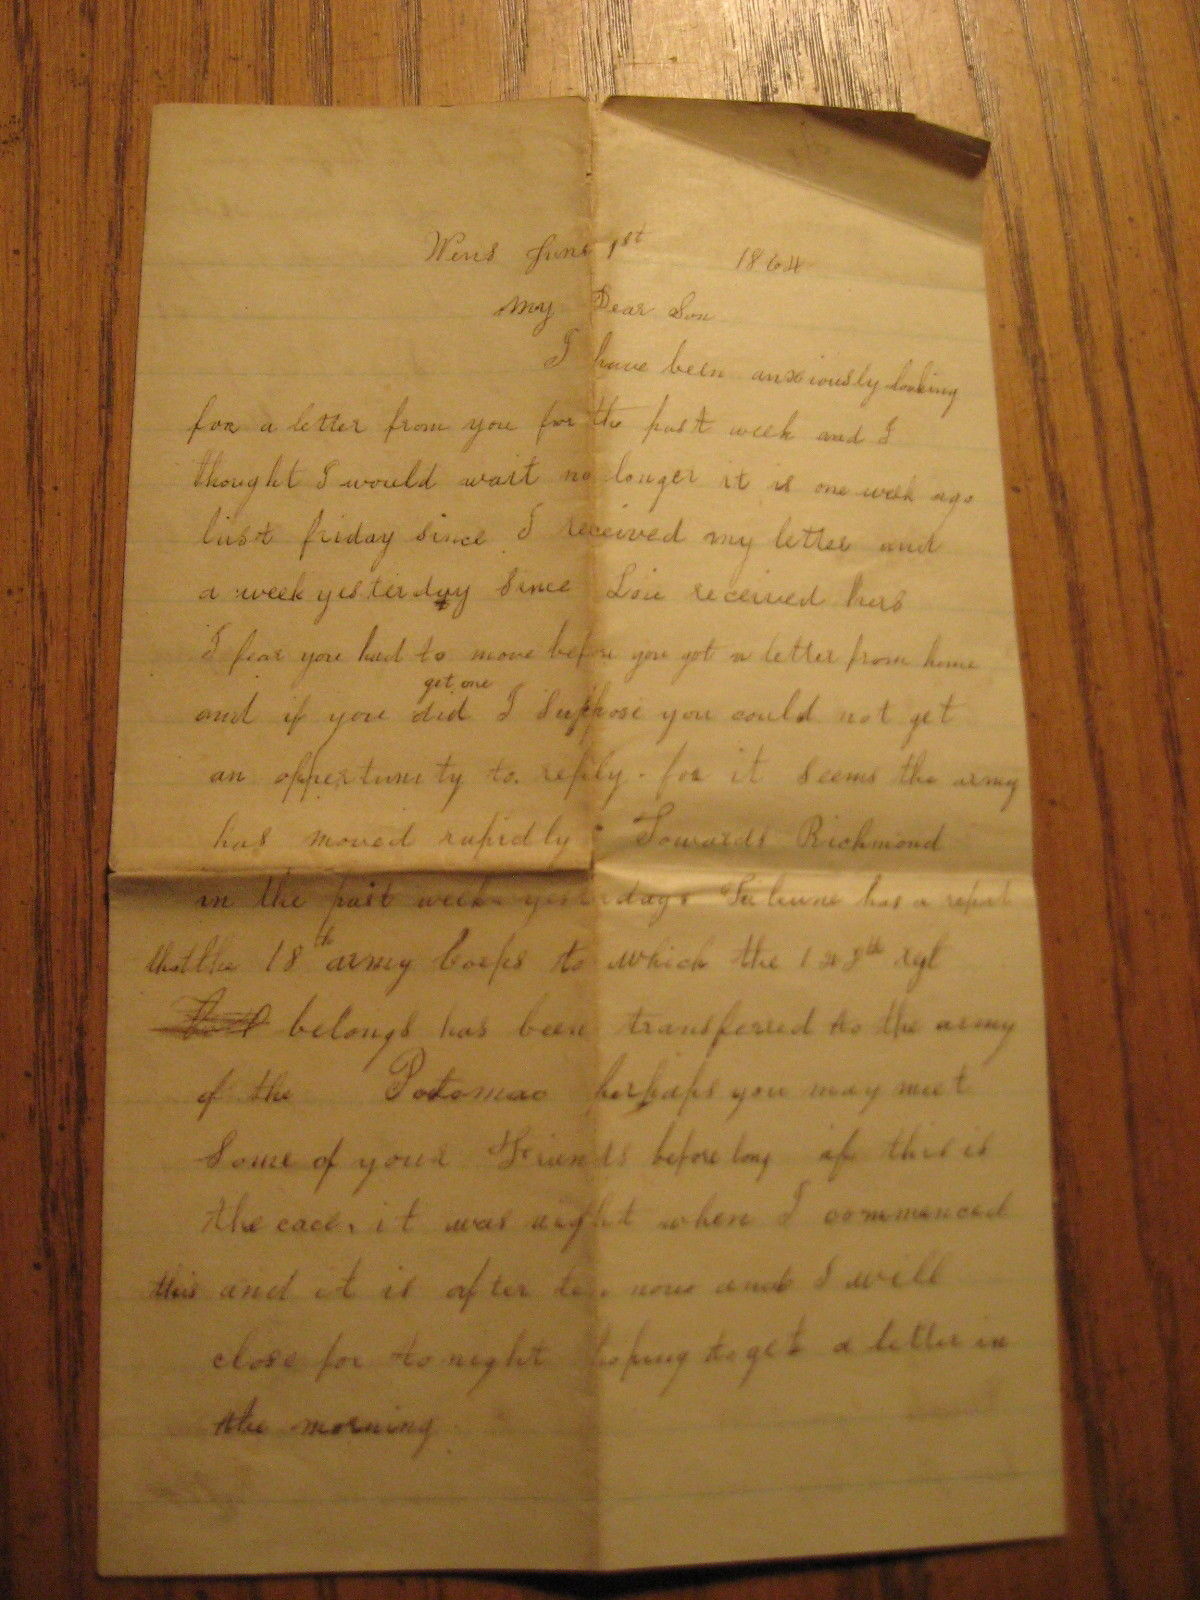 Wens June 1st 1864
My Dear Son
I have been anxiously looking
for a letter from you for the past week and I
thought I would wait no longer it is one week ago
last friday since I received my letter and
a week yesterday since Loie received hers
I fear you had to move before you got a letter from home
get one
and if you did I suppose you could not get
an oppertunity to reply. for it seems the army
has moved rapidly Towards Richmond
in the past week yesterdays Tribune has a report
that the 18th army Corps to which the 148th regt
belongs has been transferred to the army
of the Potomac perhaps you may meet
Some of your Friends before long if this is
the case, it was night when I commenced
this and it is after ten now and I will
close for to night hoping to get a letter in
the morning